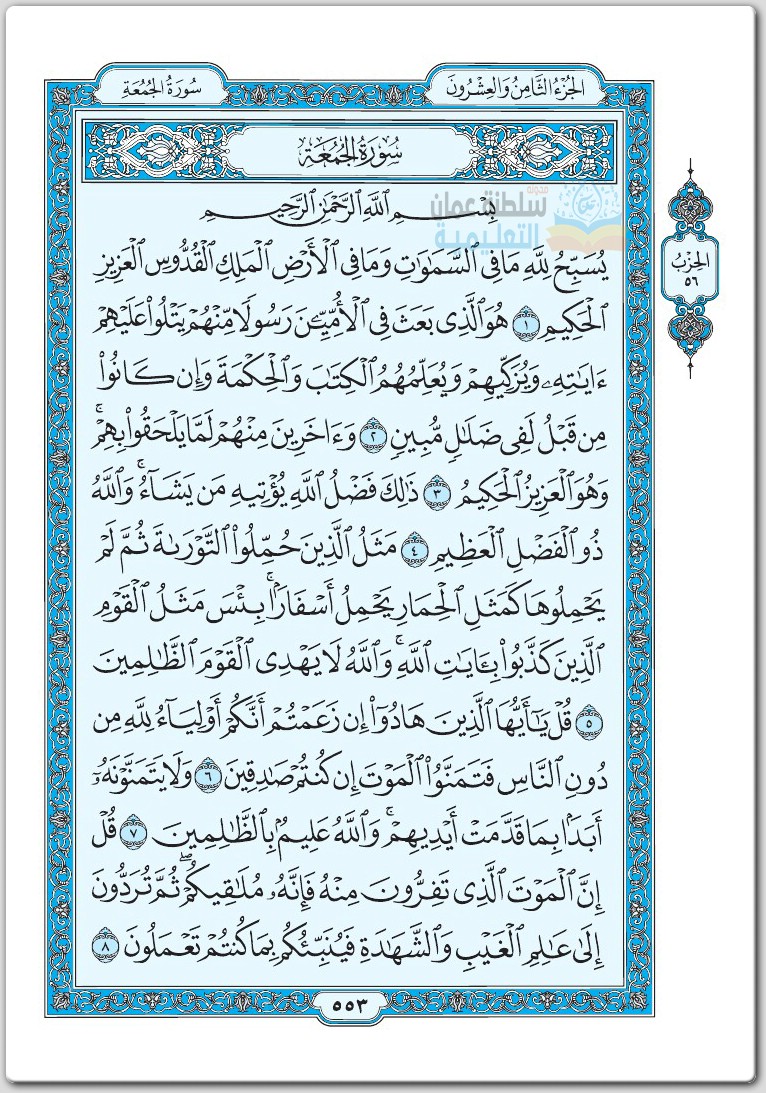 الجُزْءُ الثَّامِنُ وَالعِشْرُونَ
سُورَةُ الجُمُعَةِ
سُورَةُ الجُمُعَةِ
مدونة
سلطنة عمان
التعليمية
بِسْمِ ٱللَّهِ ٱلرَّحْمَٰنِ ٱلرَّحِيمِ
يُسَبِّحُ لِلَّهِ مَا فِي ٱلسَّمَٰوَٰتِ وَمَا فِي ٱلْأَرْضِ ٱلْمَلِكِ ٱلْقُدُّوسِ ٱلْعَزِيزِ
ٱلْحَكِيمِ ١ هُوَ ٱلَّذِي بَعَثَ فِي ٱلْأُمِّيِّـۧنَ رَسُولًا مِّنْهُمْ يَتْلُوا۟ عَلَيْهِمْ
ءَايَٰتِهِۦ وَيُزَكِّيهِمْ وَيُعَلِّمُهُمُ ٱلْكِتَٰبَ وَٱلْحِكْمَةَ وَإِن كَانُوا۟
مِن قَبْلُ لَفِي ضَلَٰلٍ مُّبِينٍ ٢ وَءَاخَرِينَ مِنْهُمْ لَمَّا يَلْحَقُوا۟ بِهِمْۚ
وَهُوَ ٱلْعَزِيزُ ٱلْحَكِيمُ ٣ ذَٰلِكَ فَضْلُ ٱللَّهِ يُؤْتِيهِ مَن يَشَآءُۚ وَٱللَّهُ
ذُو ٱلْفَضْلِ ٱلْعَظِيمِ ٤ مَثَلُ ٱلَّذِينَ حُمِّلُوا۟ ٱلتَّوْرَىٰةَ ثُمَّ لَمْ
يَحْمِلُوهَا كَمَثَلِ ٱلْحِمَارِ يَحْمِلُ أَسْفَارًۢاۚ بِئْسَ مَثَلُ ٱلْقَوْمِ
ٱلَّذِينَ كَذَّبُوا۟ بِـَٔايَٰتِ ٱللَّهِۚ وَٱللَّهُ لَا يَهْدِي ٱلْقَوْمَ ٱلظَّٰلِمِينَ
٥ قُلْ يَٰٓأَيُّهَا ٱلَّذِينَ هَادُوٓا۟ إِن زَعَمْتُمْ أَنَّكُمْ أَوْلِيَآءُ لِلَّهِ مِن
دُونِ ٱلنَّاسِ فَتَمَنَّوُا۟ ٱلْمَوْتَ إِن كُنتُمْ صَٰدِقِينَ ٦ وَلَا يَتَمَنَّوْنَهُۥٓ
أَبَدًۢا بِمَا قَدَّمَتْ أَيْدِيهِمْۚ وَٱللَّهُ عَلِيمٌۢ بِٱلظَّٰلِمِينَ ٧ قُلْ
إِنَّ ٱلْمَوْتَ ٱلَّذِي تَفِرُّونَ مِنْهُ فَإِنَّهُۥ مُلَٰقِيكُمْۖ ثُمَّ تُرَدُّونَ
إِلَىٰ عَٰلِمِ ٱلْغَيْبِ وَٱلشَّهَٰدَةِ فَيُنَبِّئُكُم بِمَا كُنتُمْ تَعْمَلُونَ ٨
الحِزْبُ
٥٦
٥٥٣